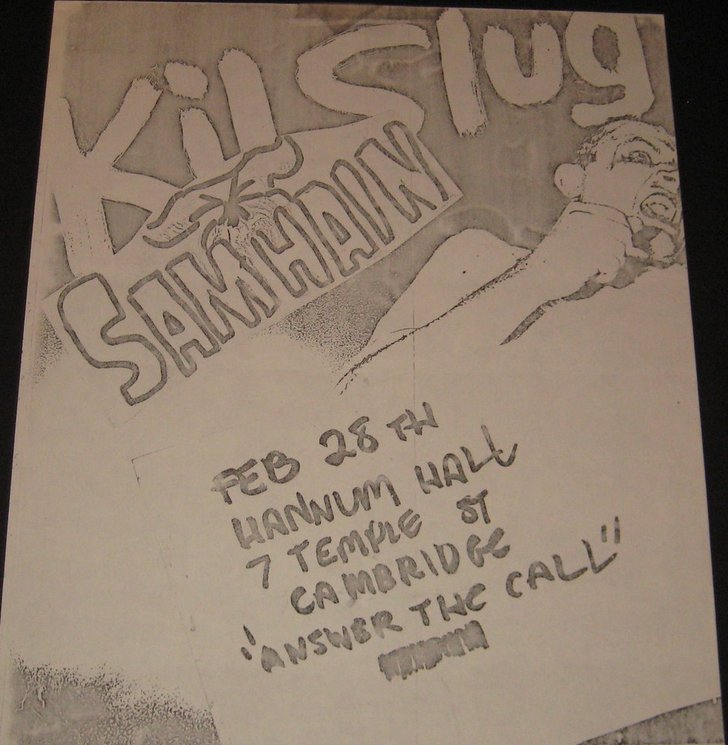 Kilslug
SAMHAIN
FEB 28TH
HANNUM HALL
7 TEMPLE ST
CAMBRIDGE
"ANSWER THE CALL"